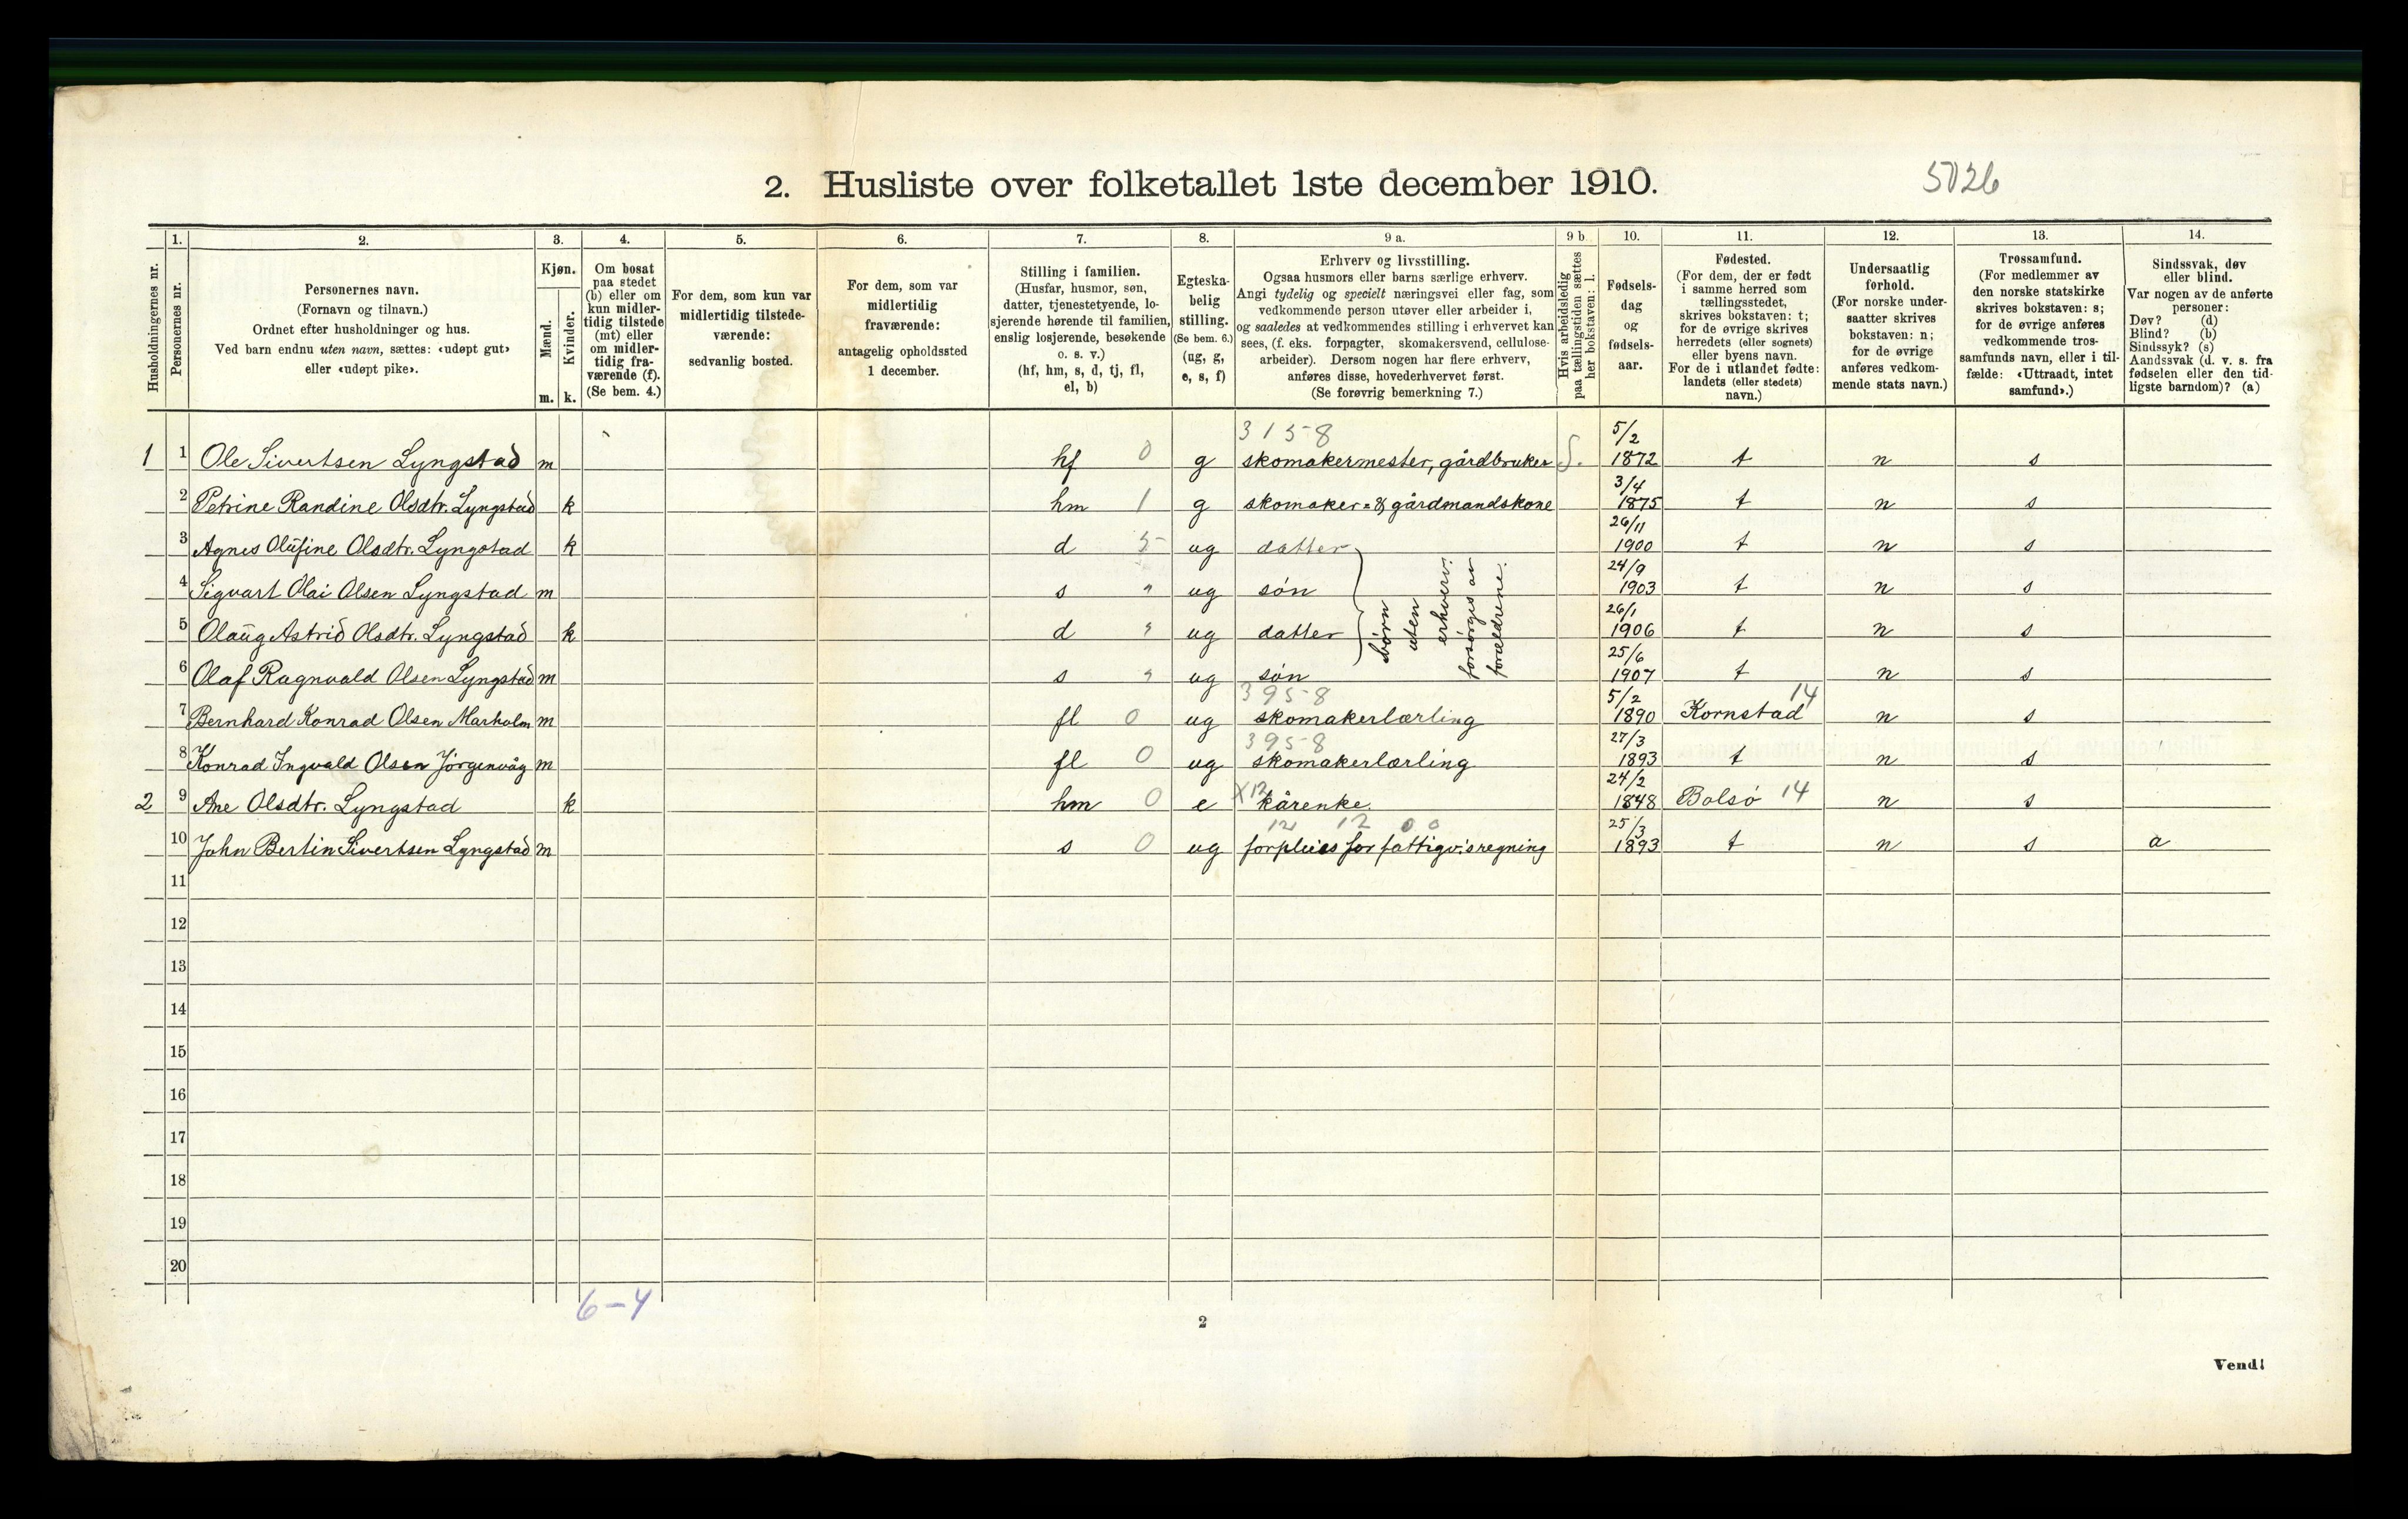 2. Husliste over folketallet 1ste december 1910.
5026
Husholdningernes nr.
1.
Personernes nr.
2.
Personernes navn.
(Fornavn og tilnavn.)
Ordnet efter husholdninger og hus.
Ved barn endnu uten navn, sættes: «udøpt gut»
eller «udøpt pike».
3.
Kjøn.
Mænd.
Kvinder.
m. k.
4.
Om bosat
paa stedet
(b) eller om
kun midler-
tidig tilstede
(mt) eller
om midler-
tidig fra-
værende (f).
(Se bem. 4.)
5.
For dem, som kun var
midlertidig tilstede-
værende:
sedvanlig bosted.
6.
For dem, som var
midlertidig
fraværende:
antagelig opholdssted
1 december.
7.
Stilling i familien.
(Husfar, husmor, søn,
datter, tjenestetyende, lo-
sjerende hørende til familien,
enslig losjerende, besøkende
o. s. v.)
(hf, hm, s, d, tj, fl,
el, b)
8.
Egteska-
belig
stilling.
(Se bem. 6.)
(ug, g,
e, s, f)
9 a.
Erhverv og livsstilling.
Ogsaa husmors eller barns særlige erhverv.
Angi tydelig og specielt næringsvei eller fag, som
vedkommende person utøver eller arbeider i,
og saaledes at vedkommendes stilling i erhvervet kan
sees, (f. eks. forpagter, skomakersvend, cellulose-
arbeider). Dersom nogen har flere erhverv,
anføres disse, hovederhvervet først.
(Se forøvrig bemerkning 7.)
9 b
Hvis arbeidsledig
paa tællingstiden sættes
her bokstaven: l.
10.
Fødsels-
dag
og
fødsels-
aar.
11.
Fødested.
(For dem, der er født
i samme herred som
tællingsstedet,
skrives bokstaven: t;
for de øvrige skrives
herredets (eller sognets)
eller byens navn.
For de i utlandet fødte:
landets (eller stedets)
navn.)
12.
Undersaatlig
forhold.
(For norske under-
saatter skrives
bokstaven: n;
for de øvrige
anføres vedkom-
mende stats navn.)
13.
Trossamfund.
(For medlemmer av
den norske statskirke
skrives bokstaven: s;
for de øvrige anføres
vedkommende tros-
samfunds navn, eller i til-
fælde: «Uttraadt, intet
samfund».)
14.
Sindssvak, døv
eller blind.
Var nogen av de anførte
personer:
Døv? (d)
Blind? (b)
Sindssyk? (s)
Aandssvak (d. v. s. fra
fødselen eller den tid-
ligste barndom)? (a)
3158 5/2
1 1 Ole Sivertsen Lyngstad m hf 0 g skomakermester, gårdbruker S. 1872 t n s
3/4
2 Petrine Randine Olsdtr. Lyngstad k hm 1 g skomaker= & gårdmandskone 1875 t n s
26/11
3 Agnes Olufine Olsdtr. Lyngstad k d 5 ug datter 1900 t n s
24/9
4 Sigvart Olai Olsen Lyngstad m s " ug søn 1903 t n s
26/1
5 Olaug Astrid Olsdtr. Lyngstad k d " ug datter 1906 t n s
25/6
6 Olaf Ragnvald Olsen Lyngstad m s " ug søn 1907 t n s
børn
uten
erhverv.
forsørges av
forældrene.
3958 5/2 14
7 Bernhard Konrad Olsen Marholm m fl 0 ug skomakerlærling 1890 Kornstad n s
3958 27/3
8 Konrad Ingvald Olsen Jörgenvåg m fl 0 ug skomakerlærling 1893 t n s
X12 24/2
2 9 Ane Olsdtr. Lyngstad k hm 0 e kårenke. 1848 Bolsö 14 n s
12 12 0 0 25/3
10 John Bertin Sivertsen Lyngstad m s 0 ug forpleies for fattigv:sregning 1893 t n s a
11
12
13
14
15
16
17
18
19
20
6-4
2
Vend!